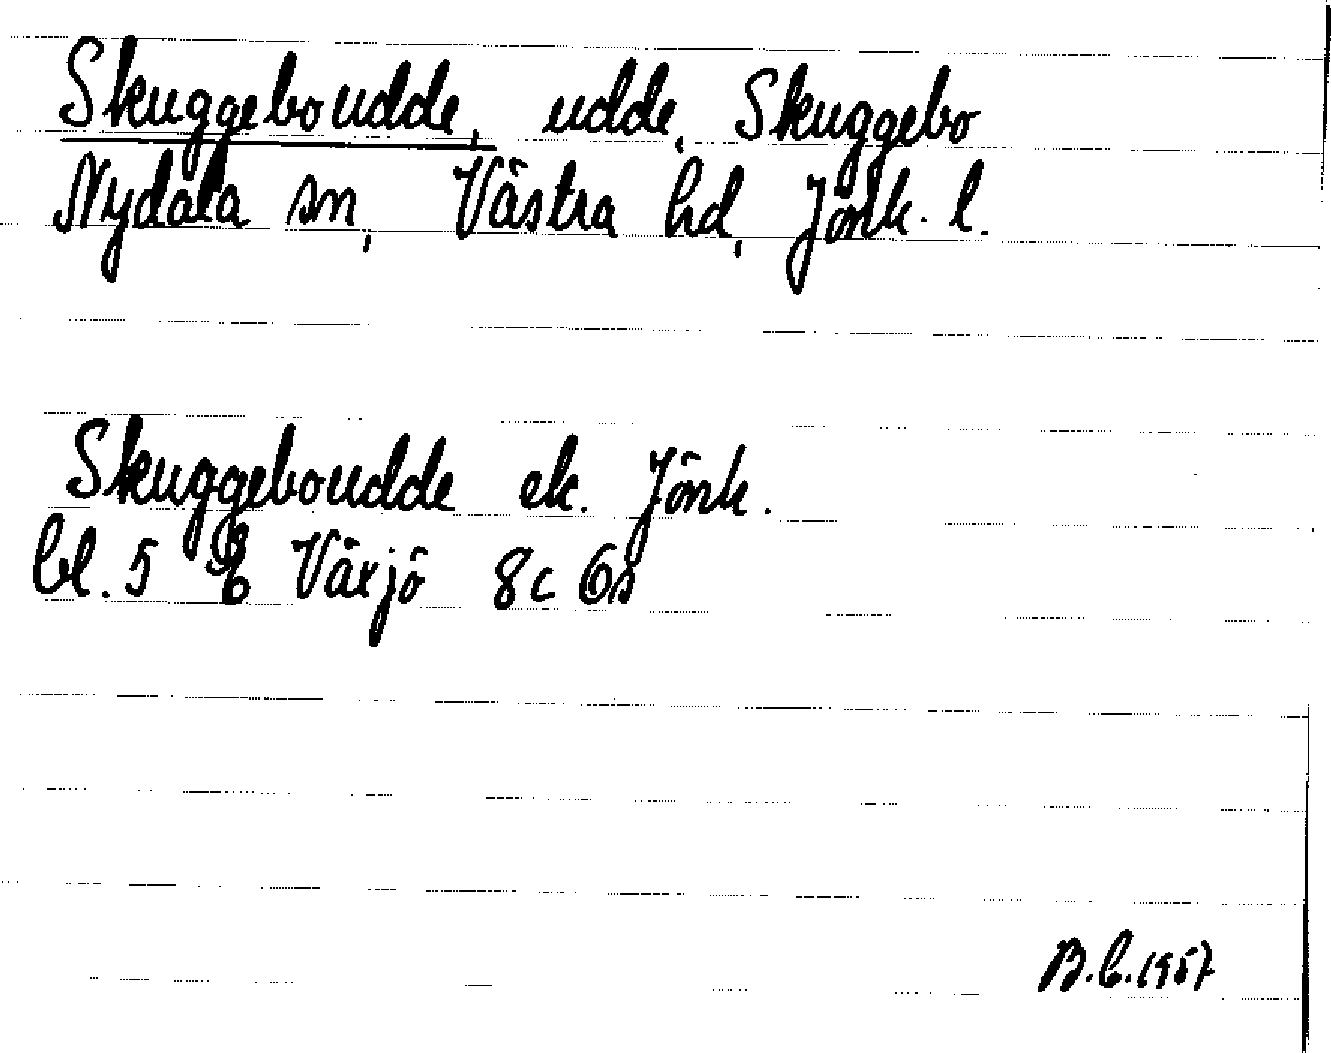 Skuggeboudde, udde, Skuggebo
Nydala sn, Västra hd, Jönk. l.
Skuggeboudde ek. Jönk.
bl. 5 Växjö 8c 6s
B.C. 1957